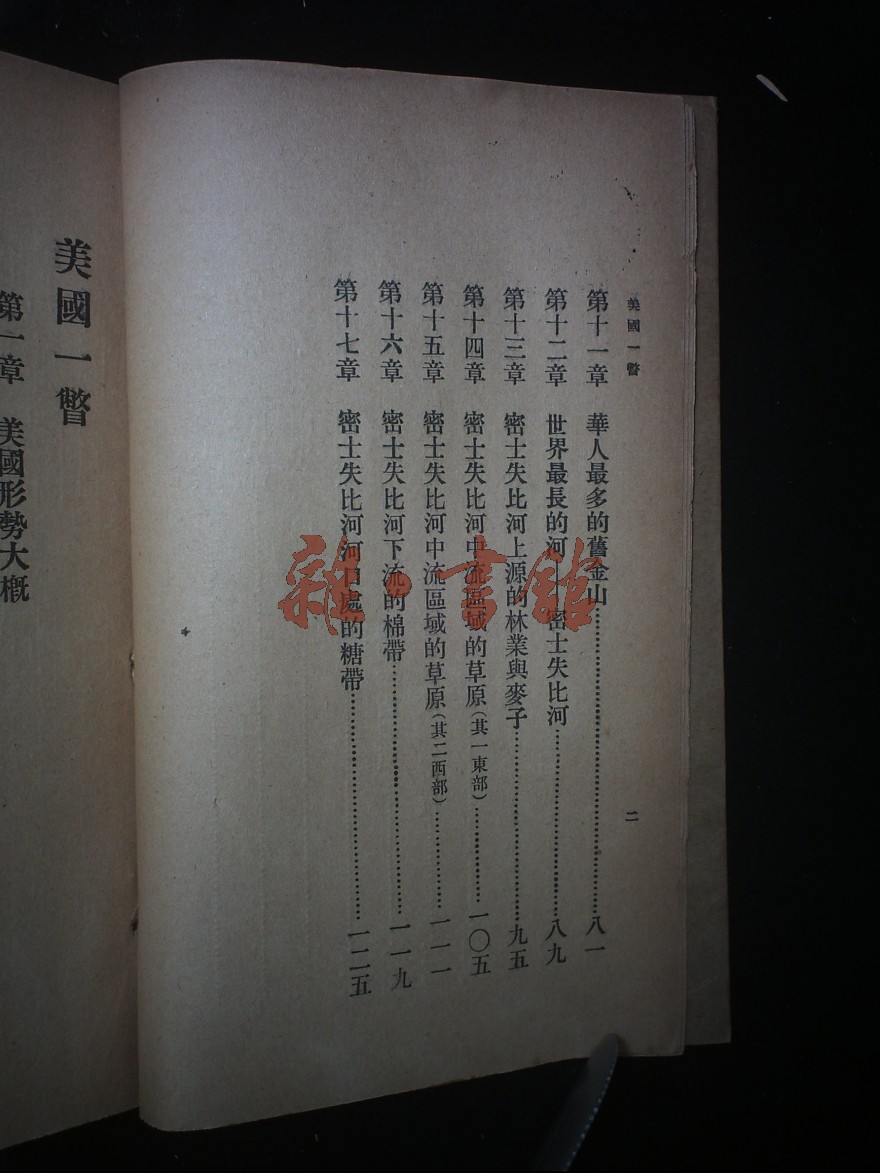 美國一瞥
第十一章　華人最多的舊金山……八一
第十二章　世界最長的河——密士失比河……八九
第十三章　密士失比河上源的林業與麥子……九五
第十四章　密士失比河中流區域的草原（其一東部）……一〇五
第十五章　密士失比河中流區域的草原（其二西部）……一一一
第十六章　密士失比河下流的棉帶……一一九
第十七章　密士失比河河口處的糖帶……一二五
二
美國一瞥
第一章　美國形勢大概
雜·書館